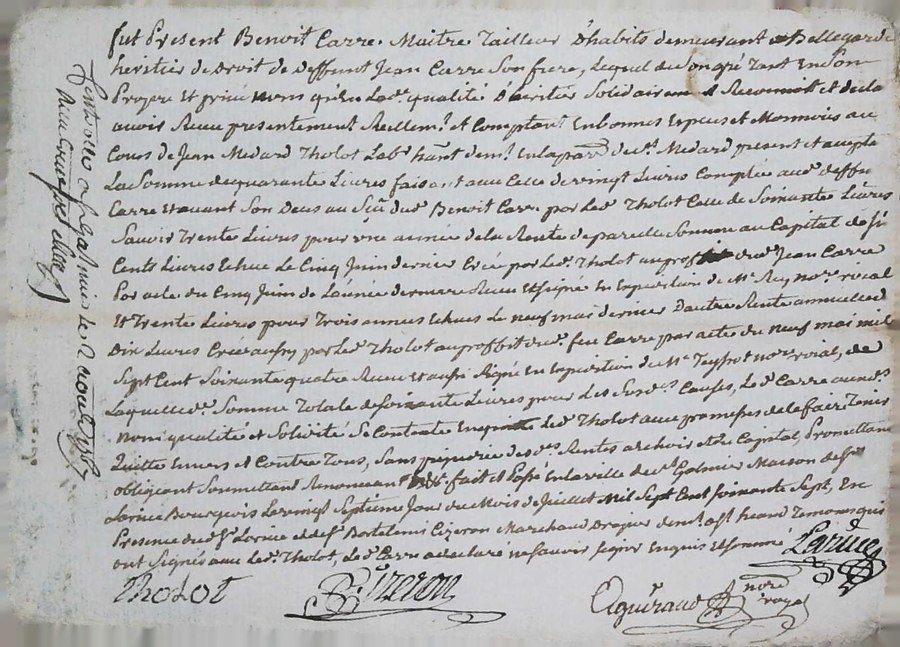 fut Present Benoit Carre Maitre Tailleur D'habits demeurant a Bellegarde
heritier de Droit de Deffunt Jean Carre Son frere, Lequel de Son gré Tant En Son
Propre Et privé nom qu'En Lad. qualité D'heritier Solidairement Reconnoit et decla
avoir Receu presentement Reellemt. et Comptant En bonnes Especes et Monnoies au
Cours de Jean Medard Tholot Labr. hant demt. En la parr. de St. Medard present et acceptt
La Somme de quarante Livres faisant avec Celle de vingt Livres Comptée aud. deffu
Carre Et avant Son Deces au Sud. Benoit Carre par Led. Tholot Celle de Soixante Livres
Savoir Trente Livres pour une année de la Rente de pareille Somme au Capital de Si
Cents Livres Echue Le Cinq Juin dernier Créé par Led. Tholot au proffit dud. Jean Carre
Par acte du Cinq Juin de L'année derniere Receu Et Signé En Expedition de Me. Rey nore. roial
Et Trente Livres pour Trois années Echues Le neuf mai dernier D'autre Rente annuelle de
Dix Livres Créé aussy par Led. Tholot au proffit dud. feu Carre par acte du neuf mai mil
Sept Cent Soixante quatre Receu Et aussi Signé En Expedition de Me. Teyssot nore. roial, de
Laquelle d. Somme Totale de Soixante Livres pour Les Susd. Causes, Led. Carre aux d.
nom qualité et Solidité Se Contente En quitte Led. Tholot avec promesse de le faire Tenir
Quitte Envers et Contre Tous, Sans prejudice des d. Rentes a echoir et du Capital, Promettant
obligeant Soumettant Renonceant fait et Passé En la ville de St. Galmier Maison de Sr.
Larive Bourgeois Le vingt Septieme Jour du Mois de Juillet Mil Sept Cent Soixante Sept, En
Presence dud. Sr. Larive et de Sr. Bartelemi Cizeron Marchand Drapier demt. aud. St. heand Temoins qui
ont Signés avec Led. Tholot, Led. Carre a declaré ne Savoir Signer Enquis Et Sommé
Larive
Tholot
B. Cizeron
Aguiraud nore. royal